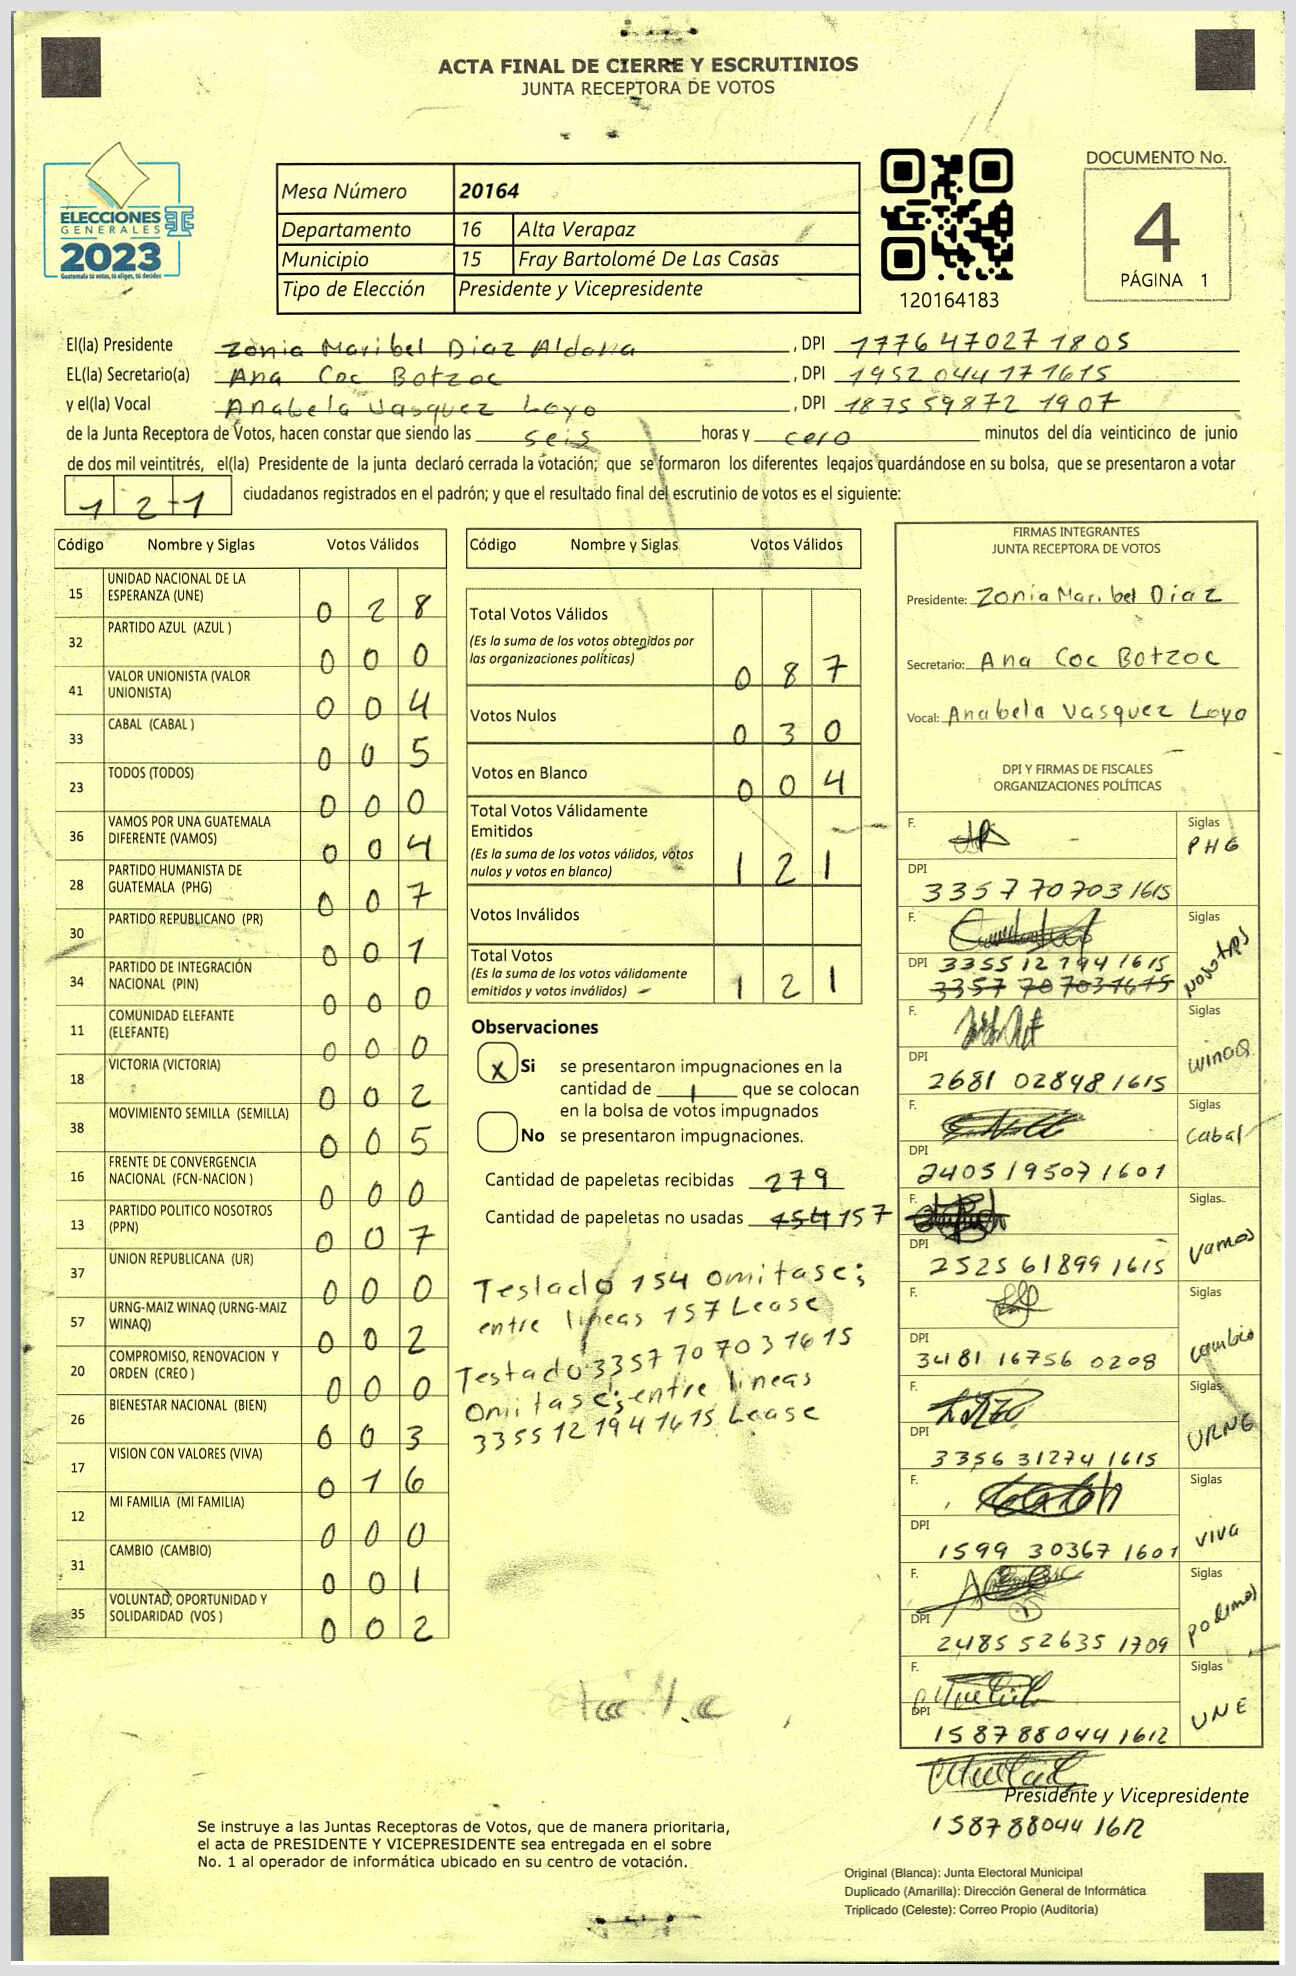 ACTA FINAL DE CIERRE Y ESCRUTINIOS
JUNTA RECEPTORA DE VOTOS
ELECCIONES
GENERALES
2023
Guatemala tú votas, tú eliges, tú decides
Mesa Número 20164
Departamento 16 Alta Verapaz
Municipio 15 Fray Bartolomé De Las Casas
Tipo de Elección Presidente y Vicepresidente
120164183
DOCUMENTO No.
4
PÁGINA 1
El(la) Presidente Zonia Maribel Diaz Aldana, DPI 1776 47027 1805
EL(la) Secretario(a) Ana Coc Botzoc, DPI 1952 04417 1615
y el(la) Vocal Anabela Vasquez Loyo, DPI 1875 59872 1907
de la Junta Receptora de Votos, hacen constar que siendo las seis horas y cero minutos del día veinticinco de junio
de dos mil veintitrés, el(la) Presidente de la junta declaró cerrada la votación; que se formaron los diferentes legajos guardándose en su bolsa, que se presentaron a votar
121 ciudadanos registrados en el padrón; y que el resultado final del escrutinio de votos es el siguiente:
Código Nombre y Siglas Votos Válidos
15 UNIDAD NACIONAL DE LA ESPERANZA (UNE) 0 2 8
32 PARTIDO AZUL (AZUL ) 0 0 0
41 VALOR UNIONISTA (VALOR UNIONISTA) 0 0 4
33 CABAL (CABAL ) 0 0 5
23 TODOS (TODOS) 0 0 0
36 VAMOS POR UNA GUATEMALA DIFERENTE (VAMOS) 0 0 4
28 PARTIDO HUMANISTA DE GUATEMALA (PHG) 0 0 7
30 PARTIDO REPUBLICANO (PR) 0 0 1
34 PARTIDO DE INTEGRACIÓN NACIONAL (PIN) 0 0 0
11 COMUNIDAD ELEFANTE (ELEFANTE) 0 0 0
18 VICTORIA (VICTORIA) 0 0 2
38 MOVIMIENTO SEMILLA (SEMILLA) 0 0 5
16 FRENTE DE CONVERGENCIA NACIONAL (FCN-NACION ) 0 0 0
13 PARTIDO POLITICO NOSOTROS (PPN) 0 0 7
37 UNION REPUBLICANA (UR) 0 0 0
57 URNG-MAIZ WINAQ (URNG-MAIZ WINAQ) 0 0 2
20 COMPROMISO, RENOVACION Y ORDEN (CREO ) 0 0 0
26 BIENESTAR NACIONAL (BIEN) 0 0 3
17 VISION CON VALORES (VIVA) 0 1 6
12 MI FAMILIA (MI FAMILIA) 0 0 0
31 CAMBIO (CAMBIO) 0 0 1
35 VOLUNTAD, OPORTUNIDAD Y SOLIDARIDAD (VOS ) 0 0 2
Código Nombre y Siglas Votos Válidos
Total Votos Válidos
(Es la suma de los votos obtenidos por
las organizaciones políticas) 0 8 7
Votos Nulos 0 3 0
Votos en Blanco 0 0 4
Total Votos Válidamente
Emitidos
(Es la suma de los votos válidos, votos
nulos y votos en blanco) 1 2 1
Votos Inválidos
Total Votos
(Es la suma de los votos válidamente
emitidos y votos inválidos) 1 2 1
Observaciones
X Si se presentaron impugnaciones en la
cantidad de 1 que se colocan
en la bolsa de votos impugnados
No se presentaron impugnaciones.
Cantidad de papeletas recibidas 279
Cantidad de papeletas no usadas 154 157
Teslado 154 omitase;
entre lineas 157 Lease
Testado 3357 70 703 1615
Omitase; entre lineas
3355 12 194 1615 Lease
FIRMAS INTEGRANTES
JUNTA RECEPTORA DE VOTOS
Presidente: Zonia Maribel Diaz
Secretario: Ana Coc Botzoc
Vocal: Anabela Vasquez Loyo
DPI Y FIRMAS DE FISCALES
ORGANIZACIONES POLÍTICAS
F. Siglas PHG
DPI 3357 70703 1615
F. Siglas Nosotros
DPI 3355 12 194 1615
3357 70 703 1615
F. Siglas winaq
DPI 2681 02848 1615
F. Siglas Cabal
DPI 2405 19507 1601
F. Siglas vamos
DPI 2525 61899 1615
F. Siglas cambio
DPI 3481 16756 0208
F. Siglas URNG
DPI 3356 31274 1615
F. Siglas viva
DPI 1599 30367 1601
F. Siglas podemos
DPI 2485 52635 1709
F. Siglas UNE
DPI 1587 88044 1612
Presidente y Vicepresidente
1587 88044 1612
Se instruye a las Juntas Receptoras de Votos, que de manera prioritaria,
el acta de PRESIDENTE Y VICEPRESIDENTE sea entregada en el sobre
No. 1 al operador de informática ubicado en su centro de votación.
Original (Blanca): Junta Electoral Municipal
Duplicado (Amarilla): Dirección General de Informática
Triplicado (Celeste): Correo Propio (Auditoría)